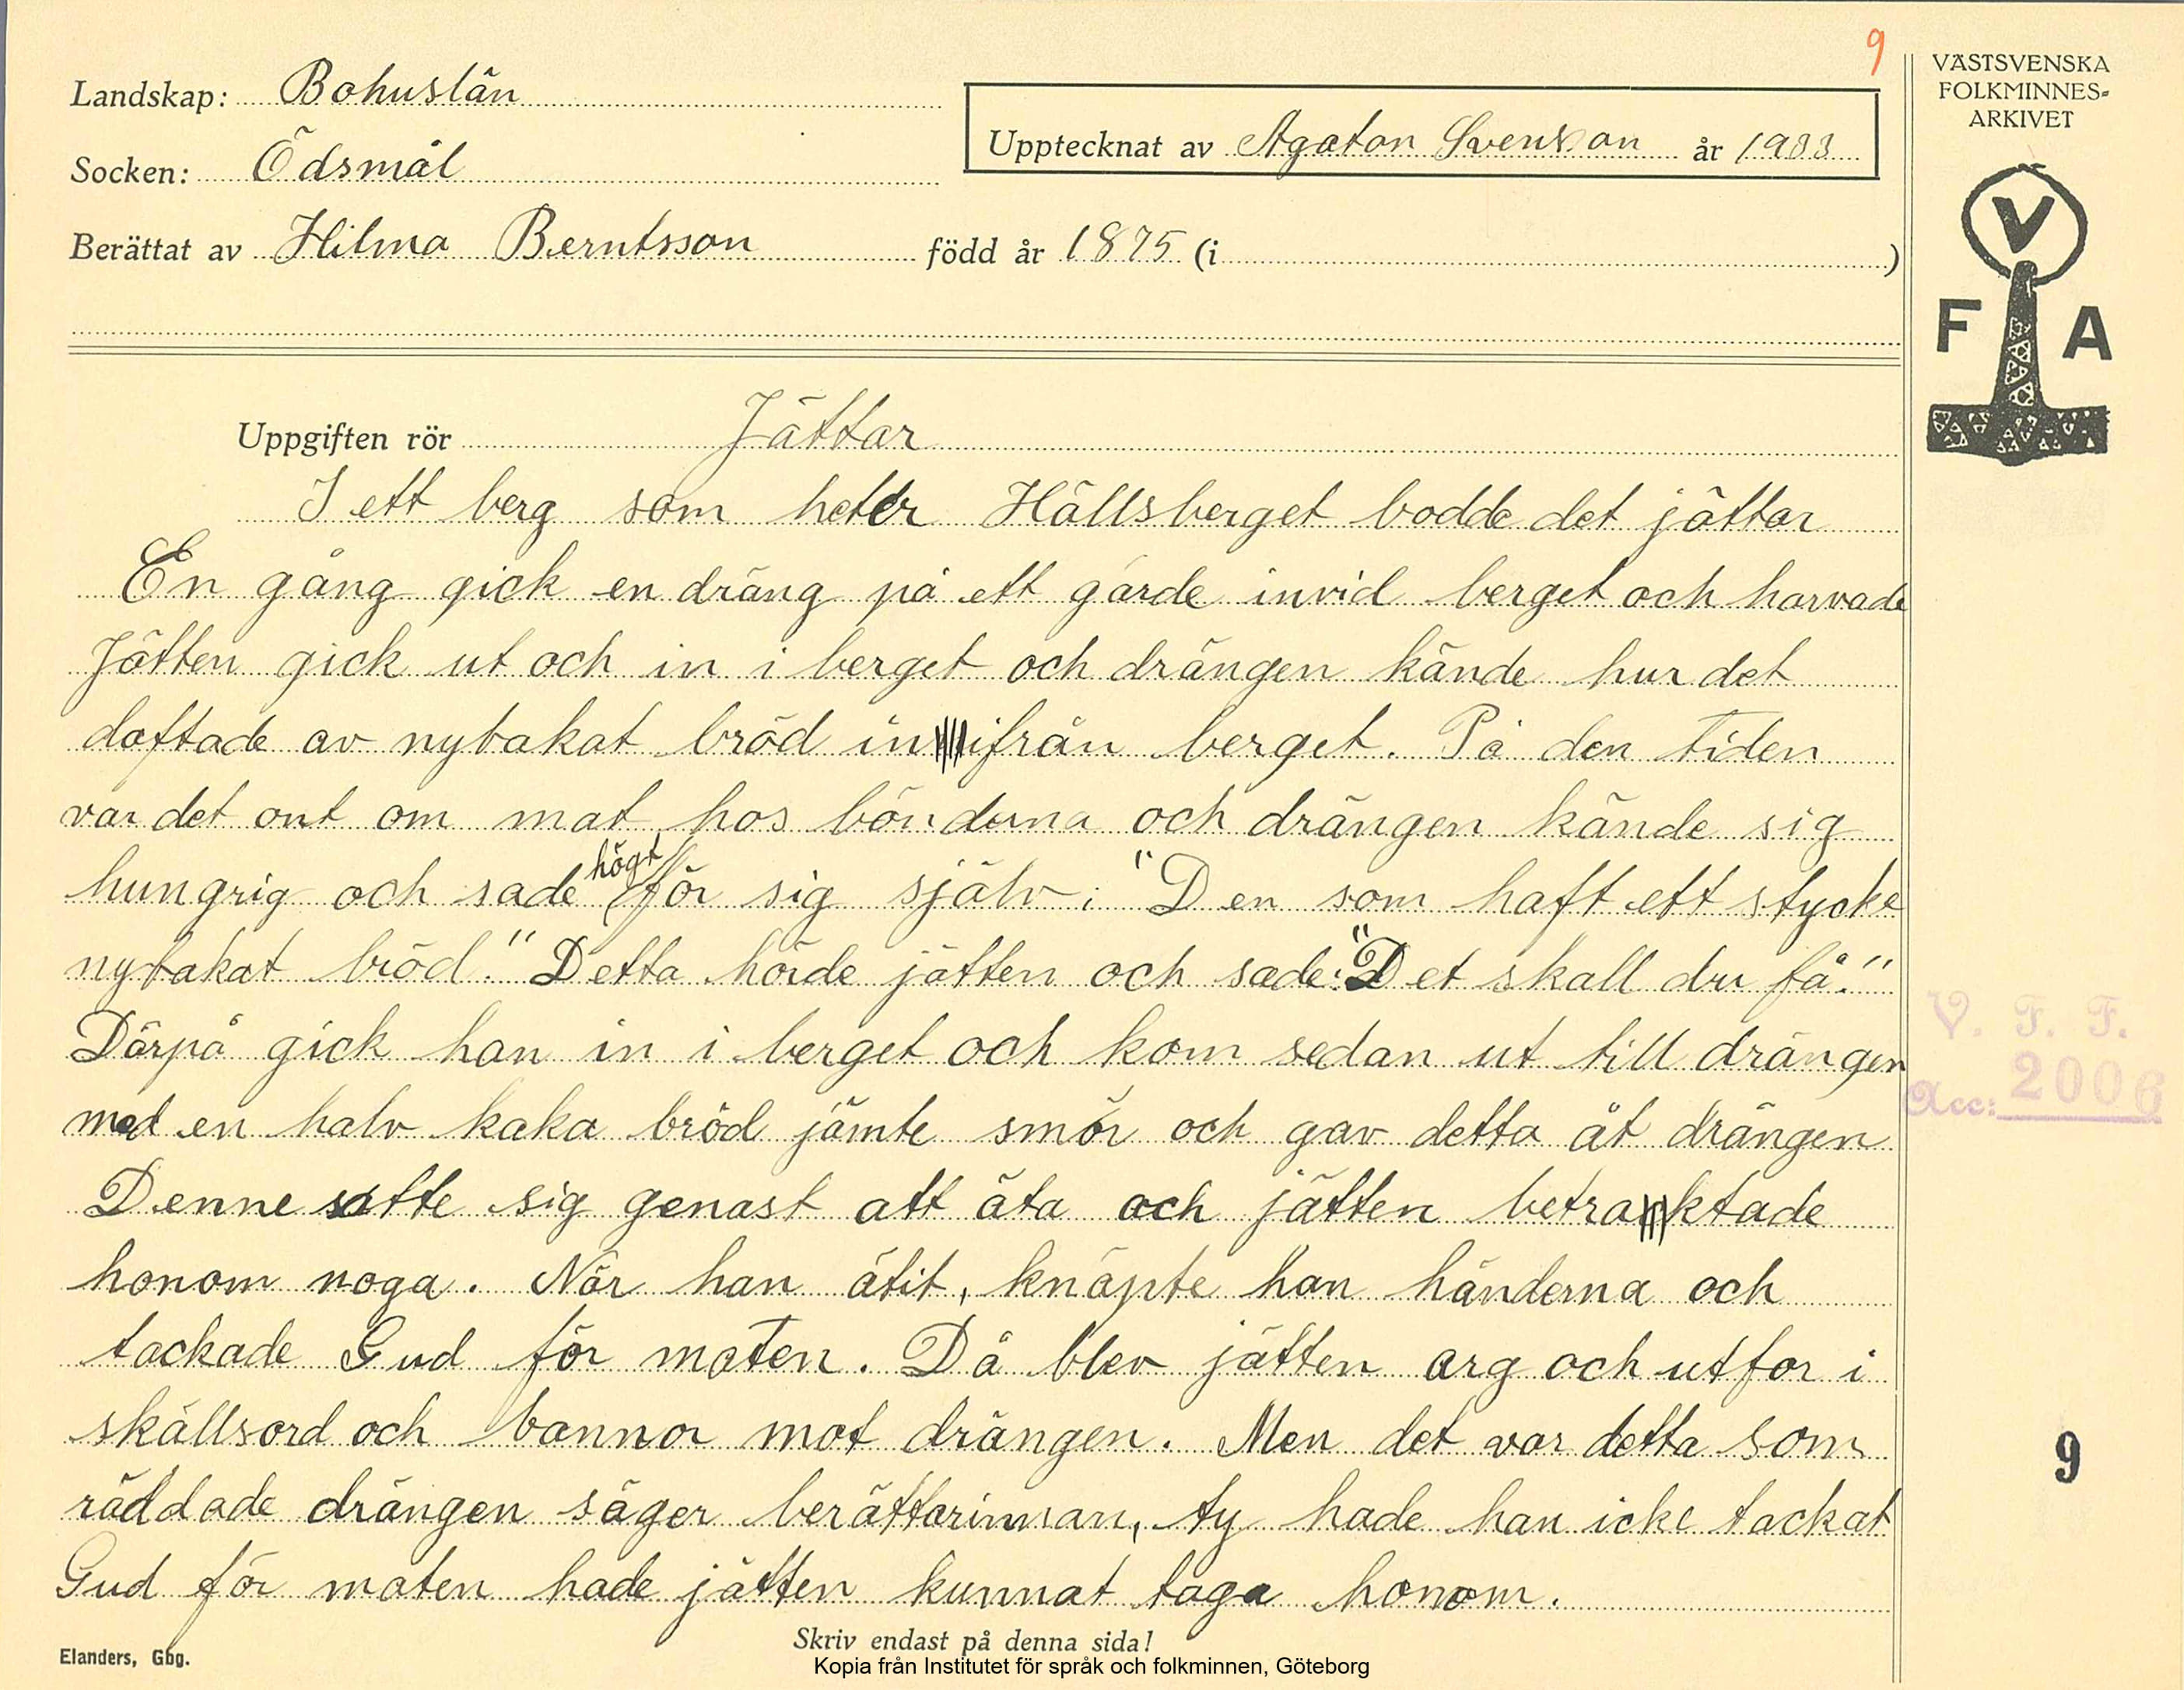 9
Landskap: Bohuslän
Socken: Ödsmål
Berättat av Hilma Berntsson född år 1875 (i )
Upptecknat av Agaton Svensson år 1933
VÄSTSVENSKA
FOLKMINNES-
ARKIVET
V
F A
Uppgiften rör Jättar
I ett berg som heter Hällsberget bodde det jättar
En gång gick en dräng på ett gärde invid berget och harvade
Jätten gick ut och in i berget och drängen kände hur det
doftade av nybakat bröd inifrån berget. På den tiden
var det ont om mat hos bönderna och drängen kände sig
hungrig och sade högt för sig själv: "Den som haft ett stycke
nybakat bröd." Detta hörde jätten och sade: "Det skall du få."
Därpå gick han in i berget och kom sedan ut till drängen
med en halv kaka bröd jämte smör och gav detta åt drängen
Denne satte sig genast att äta och jätten betraktade
honom noga. När han ätit, knäpte han händerna och
tackade Gud för maten. Då blev jätten arg och utfor i
skällsord och bannor mot drängen. Men det var detta som
räddade drängen säger berätterinnan, ty hade han icke tackat
Gud för maten hade jätten kunnat taga honom.
V. F. F.
Acc: 2006
9
Skriv endast på denna sida!
Elanders, Gbg.
Kopia från Institutet för språk och folkminnen, Göteborg